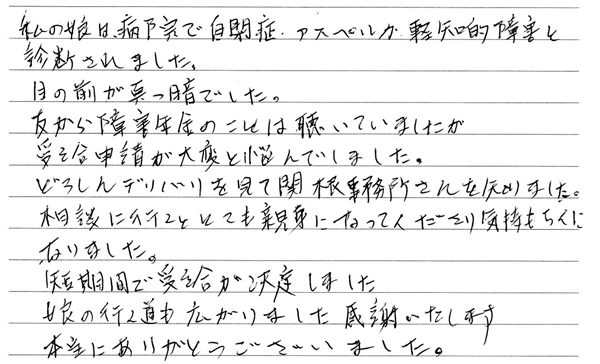 私の娘は、病院で自閉症・アスペルガ、軽知的障害と
診断されました。
目の前が真っ暗でした。
友から障害年金のことは聴いていましたが
受給申請が大変と悩んでしました。
どうしんデリバリを見て関根事務所さんを知りました。
相談に行くととても親身になってくださり気持もらくに
なりました。
短期間で受給が決定しました
娘の行く道も広がりました 感謝いたします
本当にありがとうございました。